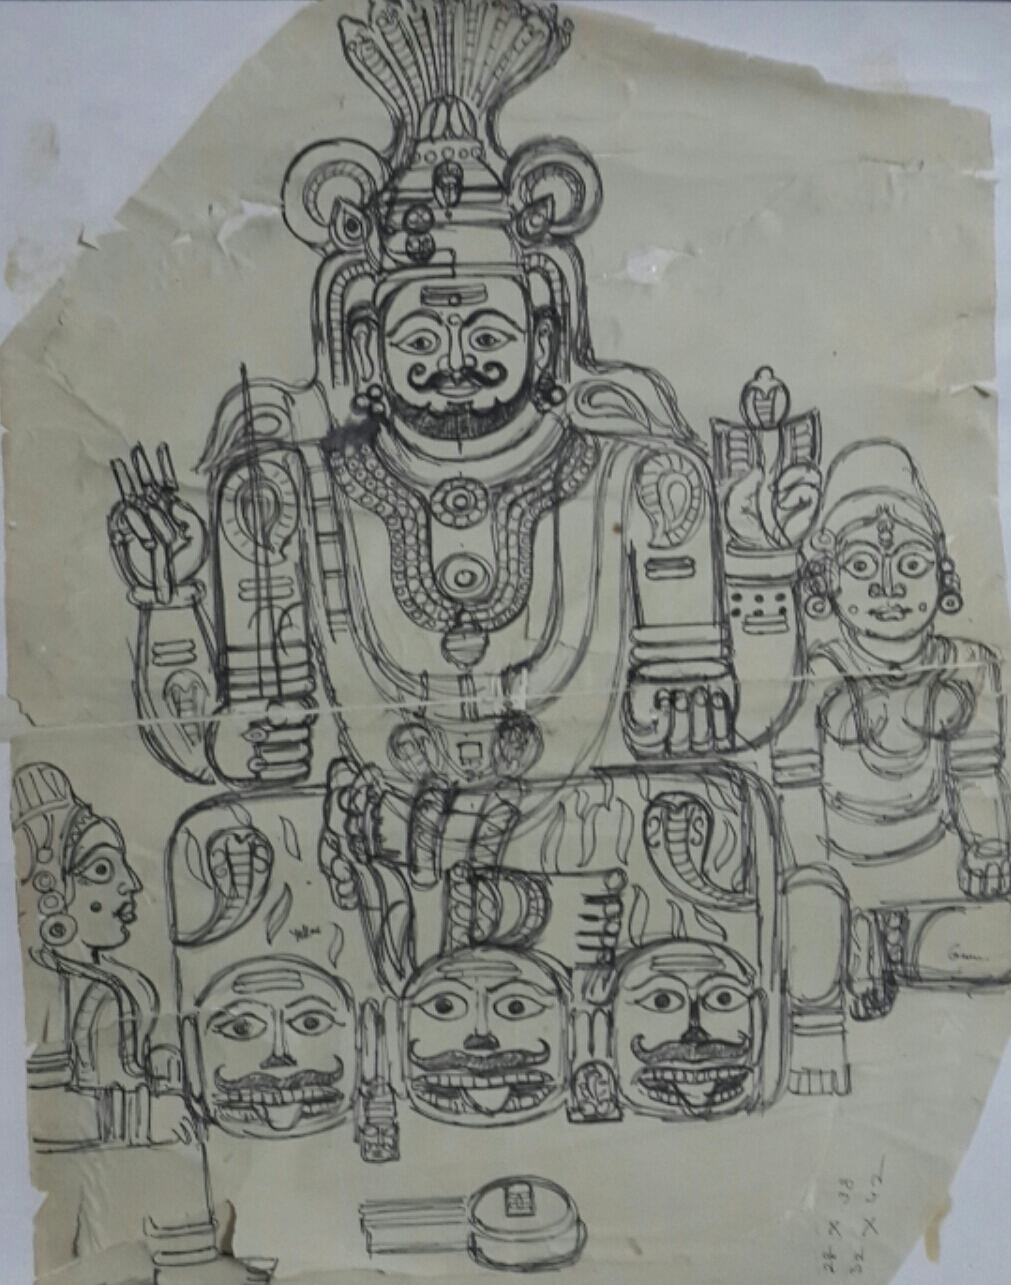 Yellow
Green
28 X 38
32 X 42